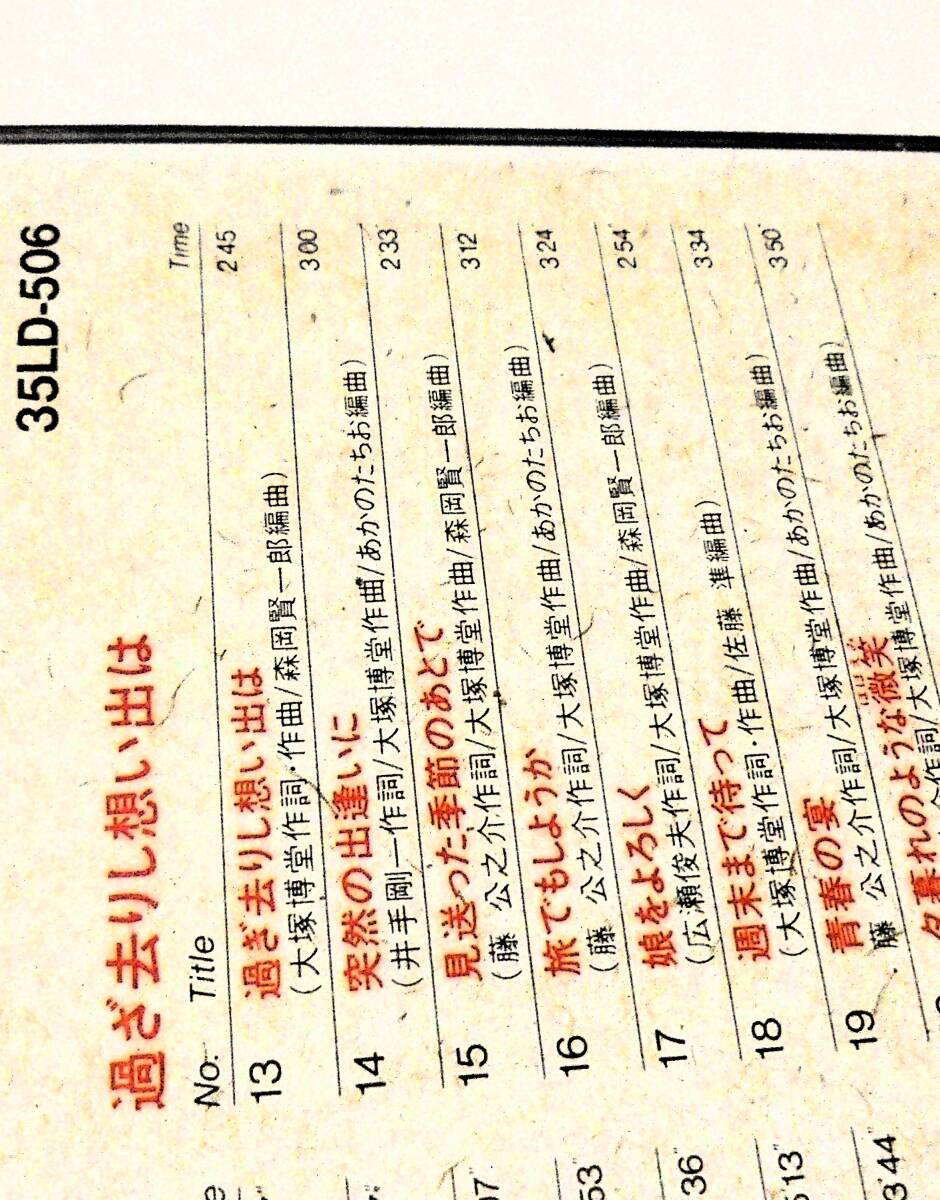 35LD-506
過ぎ去りし想い出は
No. Title Time
13 過ぎ去りし想い出は 2'45"
(大塚博堂作詞・作曲/森岡賢一郎編曲)
14 突然の出逢いに 3'00"
(井手剛一作詞/大塚博堂作曲/あかのたちお編曲)
15 見送った季節のあとで 2'33"
(藤 公之介作詞/大塚博堂作曲/森岡賢一郎編曲)
16 旅でもしようか 3'12"
(藤 公之介作詞/大塚博堂作曲/あかのたちお編曲)
17 娘をよろしく 3'24"
(広瀬俊夫作詞/大塚博堂作曲/森岡賢一郎編曲)
18 週末まで待って 2'54"
(大塚博堂作詞・作曲/佐藤 準編曲)
19 青春の宴 3'34"
藤 公之介作詞/大塚博堂作曲/あかのたちお編曲)
夕暮れのような微笑 3'50"
介作詞/大塚博堂作曲/あかのたちお編曲)
07"
53"
36"
13"
3'44"